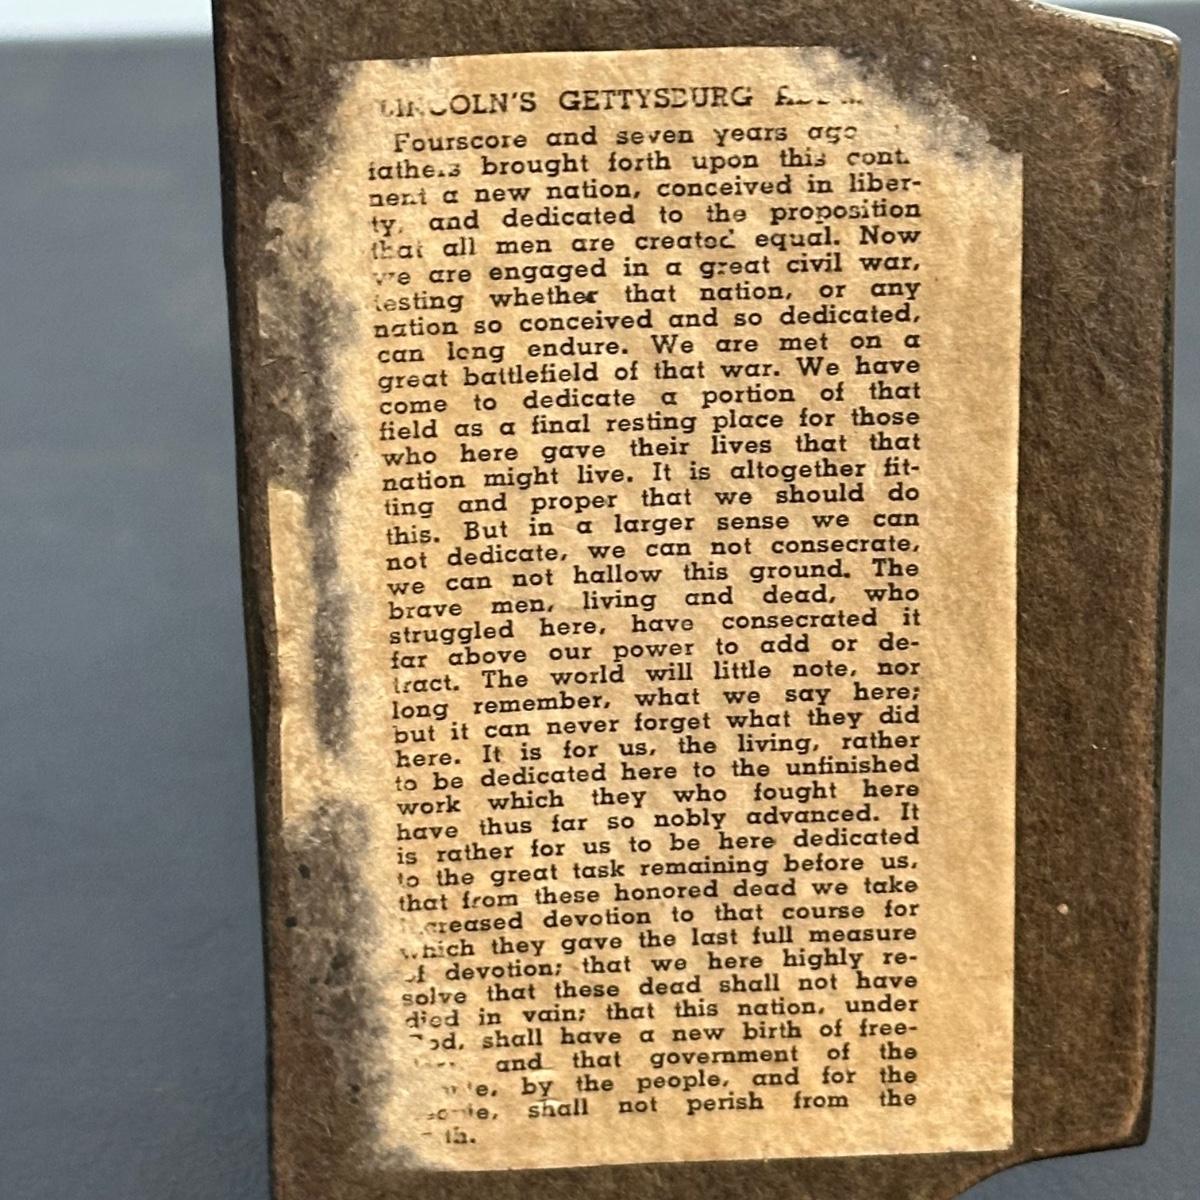 LINCOLN'S GETTYSBURG
Fourscore and seven years ago
fathers brought forth upon this conti-
nent a new nation, conceived in liber-
ty, and dedicated to the proposition
that all men are created equal. Now
we are engaged in a great civil war,
testing whether that nation, or any
nation so conceived and so dedicated,
can long endure. We are met on a
great battlefield of that war. We have
come to dedicate a portion of that
field as a final resting place for those
who here gave their lives that that
nation might live. It is altogether fit-
ting and proper that we should do
this. But in a larger sense we can
not dedicate, we can not consecrate,
we can not hallow this ground. The
brave men, living and dead, who
struggled here, have consecrated it
far above our power to add or de-
tract. The world will little note, nor
long remember, what we say here;
but it can never forget what they did
here. It is for us, the living, rather
to be dedicated here to the unfinished
work which they who fought here
have thus far so nobly advanced. It
is rather for us to be here dedicated
to the great task remaining before us,
that from these honored dead we take
increased devotion to that course for
which they gave the last full measure
of devotion; that we here highly re-
solve that these dead shall not have
died in vain; that this nation, under
God, shall have a new birth of free-
and that government of the
by the people, and for the
shall not perish from the